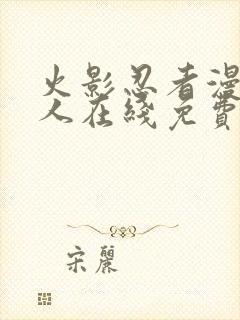 火影忍者漫
人在綫免費
宋麗